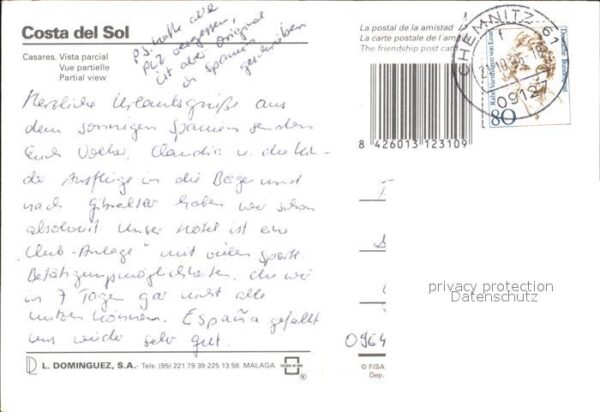 Costa del Sol
Casares. Vista parcial
Vue partielle
Partial view
PS. hatte die
PLZ vergessen,
ist aber original
in Spanien
geschrieben
Herzliche Urlaubsgrüße aus
dem sonnigen Spanien senden
Euch Volker, Claudia u. die
Ausflüge in die Berge und
nach Gibraltar haben wir schon
absolviert. Unser Hotel ist eine
"Club-Anlage" mit vielen Sport
Betätigungsmöglichkeiten, die wir
in 7 Tagen gar nicht alle
nutzen können. España gefällt
uns wieder sehr gut.
L. DOMINGUEZ, S.A. - Tels. (95) 221 79 39-225 13 58 MALAGA
®
La postal de la amistad
La carte postale de l'ami
The friendship post card
8 426013 123109
CHEMNITZ 61
09127
Deutsche Bundespost
Rahel Varnhagen von Ense
80
privacy protection
Datenschutz
0964
© FISA
Dep.